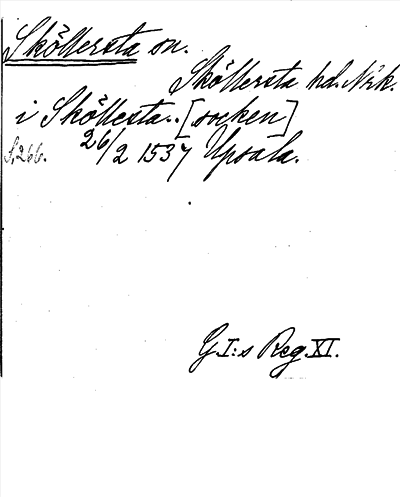 Sköllersta sn.
Sköllersta hd. Närk.
i Sköllesta.. [socken]
S. 266. 26/2 1537 Upsala.
G. I:s Reg. XI.